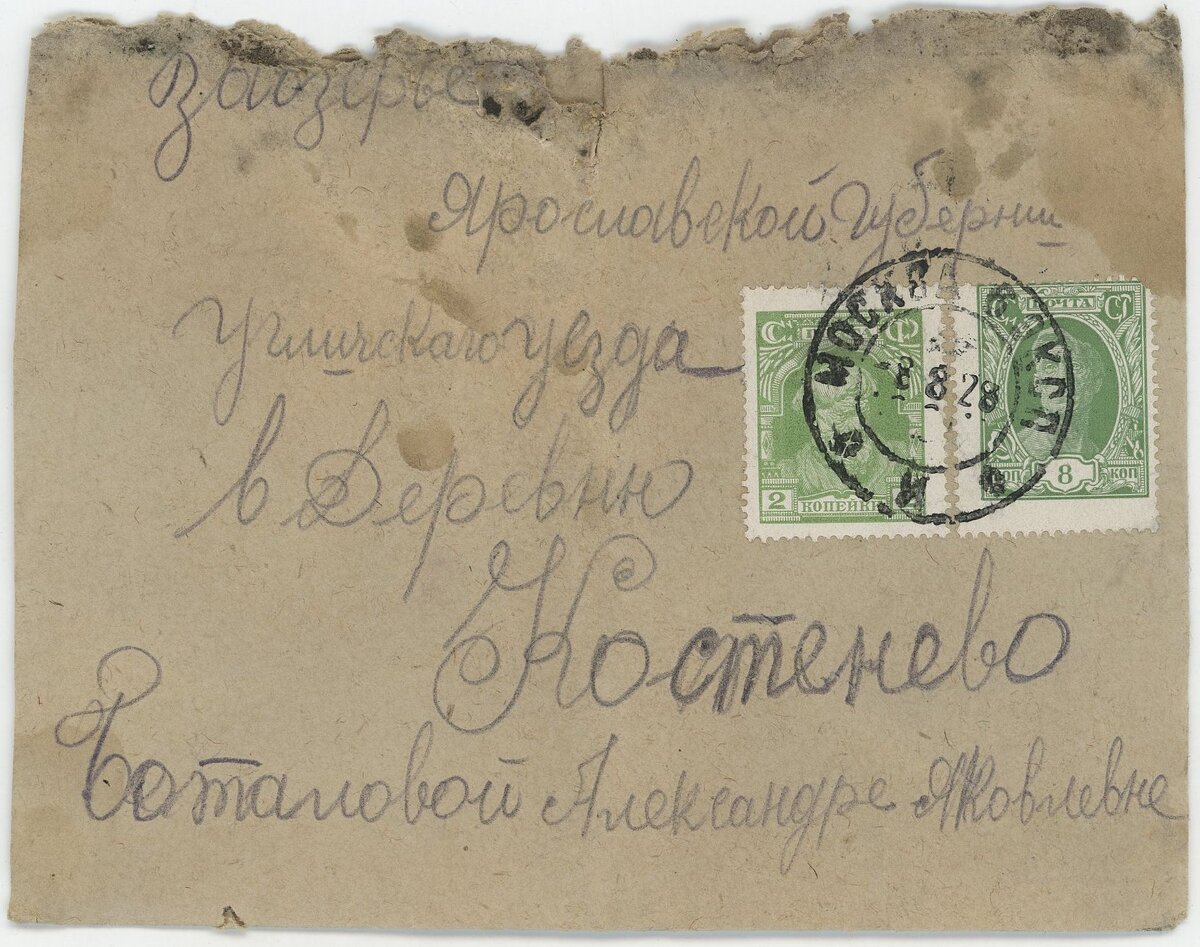 Заозерье
Ярославской Губернии
Угличскаго уезда
в Деревню
Костенево
Боталовой Александре Яковлевне
МОСКВА
-8.8.28
ПОЧТА
2 КОПЕЙКИ 2
КОП 8 КОП